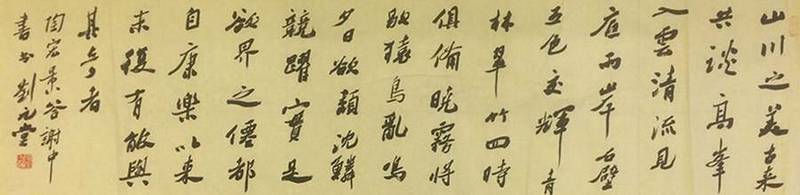 山川之美古来
共談高峯
入雲清流見
底兩岸石壁
五色交輝青
林翠竹四時
俱備曉霧將
歇猿鳥亂鳴
夕日欲頹沈鱗
競躍實是
欲界之僊都
自康樂以来
未復有能與
其奇者
陶宏景答謝中
書書劉元堂